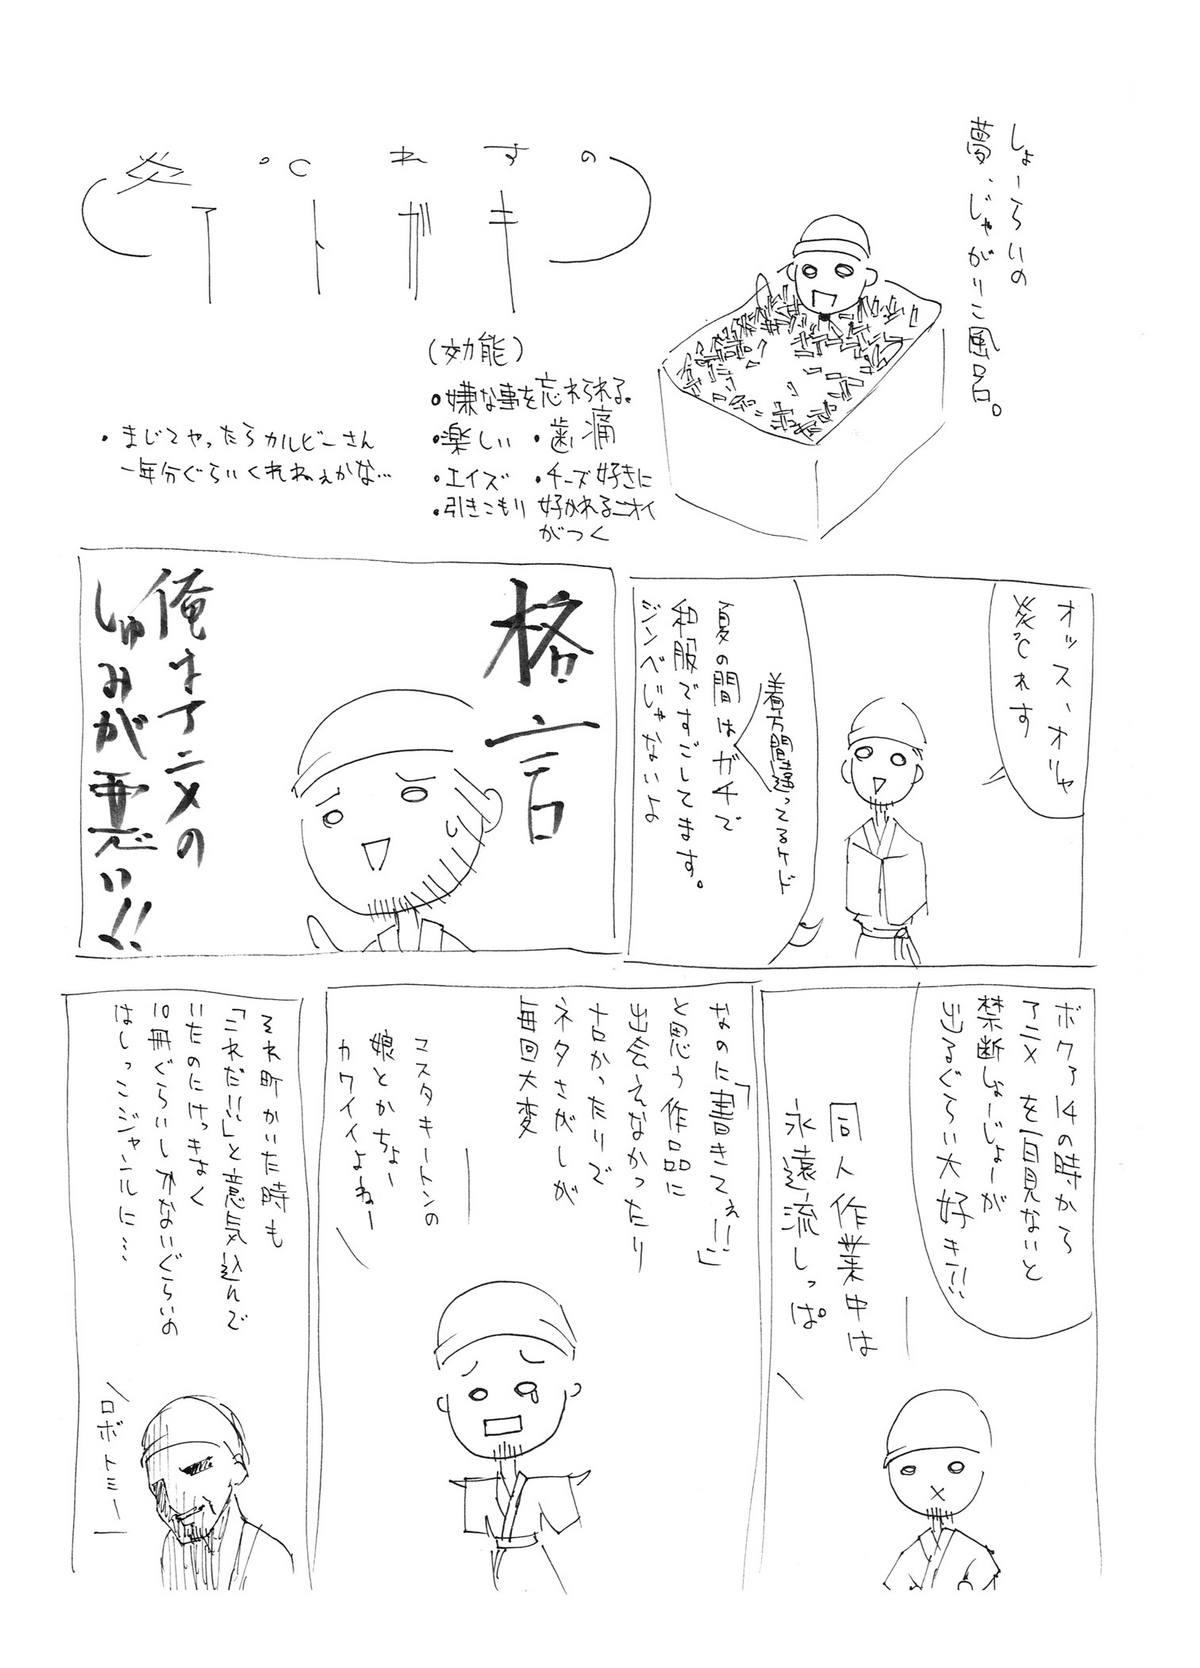 しょーらいの
夢、じゃがりこ風呂。
炎℃れすの
アトガキ
(効能)
・嫌な事を忘れられる。
・楽しい ・歯痛
・エイズ ・チーズ好きに
・引きこもり 好かれるニオイ
がつく
・まじでやったらカルビーさん
一年分ぐらいくれねぇかな…
オッス、オリャ
炎℃れす
着方間違ってるケド
夏の間はガチで
和服ですごしてます。
ジンベじゃないよ
格言
俺はアニメの
しゅみが悪い!!
ボクァ14の時から
アニメを一日見ないと
禁断しょーじょーが
出るぐらい大好き!!
同人作業中は
永遠流しっぱ
なのに「書きてぇ!!」
と思う作品に
出会えなかったり
ナカったりで
ネタさがしが
毎回大変
マスタキートンの
娘とかちょー
カワイイよねー
それ町かいた時も
「これだ!!」と意気込んで
いたのにけっきょく
10冊ぐらいしかないぐらいの
はしっこジャンルに…
ロボトミー